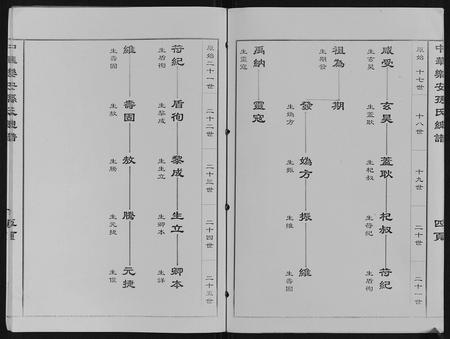 中華樂安孫氏總譜
四頁
原始 十七世 十八世 十九世 二十世 二十一世
咸受 玄昊 蓋耿 杞叔 苻紀
生玄昊 生蓋耿 生杞叔 生苻紀 生盾徇
祖為 期
生期發
發 媯方 振 維
生媯方 生振 生維 生壽固
禹納 靈寇
生靈寇
原始二十一世 二十二世 二十三世 二十四世 二十五世
苻紀 盾徇 黎成 生立 卿本
生盾徇 生黎成 生生立 生卿本
維 壽固 敖 騰 元捷
生壽固 生敖 生騰 生元捷
中華樂安孫氏總譜
五頁